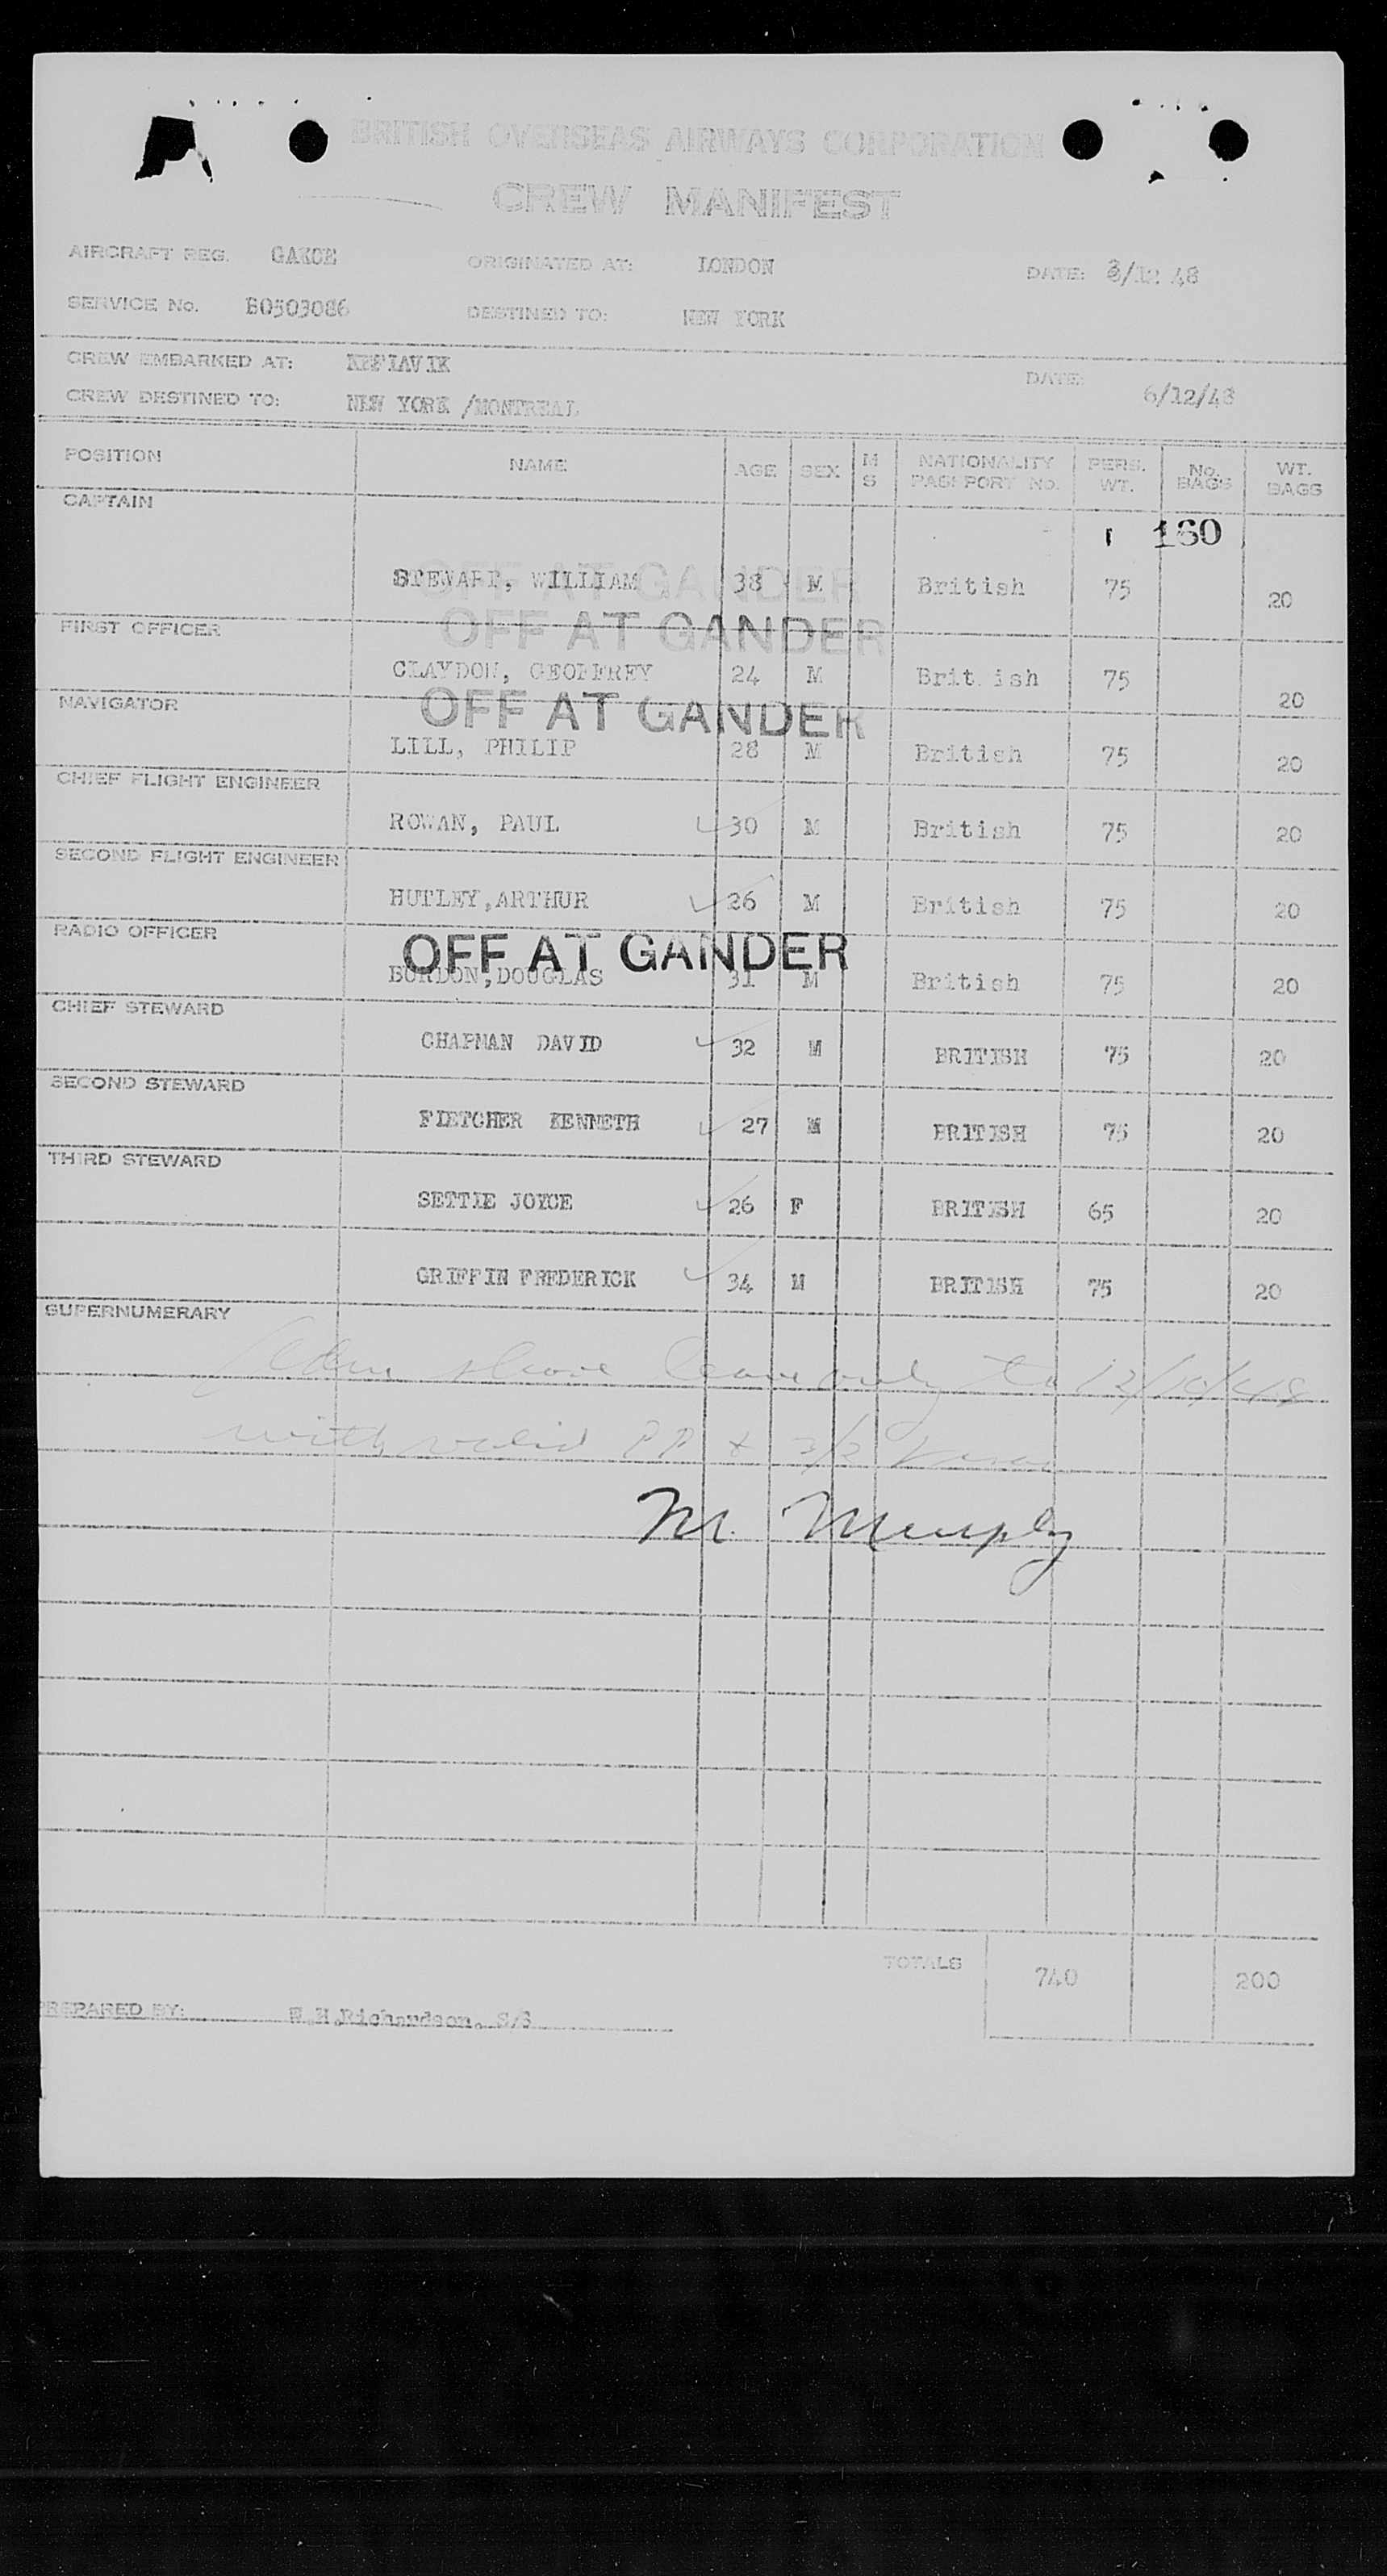 BRITISH OVERSEAS AIRWAYS CORPORATION
CREW MANIFEST
AIRCRAFT REG. GAKOE ORIGINATED AT: LONDON DATE: 3/12 48
SERVICE No. B0503086 DESTINED TO: NEW YORK
CREW EMBARKED AT: KEFLAVIK DATE: 6/12/48
CREW DESTINED TO: NEW YORK /MONTREAL
POSITION NAME AGE SEX M S NATIONALITY PASSPORT No. PERS. WT. No. BAGS WT. BAGS
CAPTAIN
160
STEWART, WILLIAM 38 M British 75 20
OFF AT GANDER
FIRST OFFICER
OFF AT GANDER
CLAYDON, GEOFFREY 24 M Brit ish 75 20
NAVIGATOR
OFF AT GANDER
LILL, PHILIP 28 M British 75 20
CHIEF FLIGHT ENGINEER
ROWAN, PAUL 30 M British 75 20
SECOND FLIGHT ENGINEER
HUTLEY,ARTHUR 26 M British 75 20
RADIO OFFICER
OFF AT GANDER
BURDON,DOUGLAS 31 M British 75 20
CHIEF STEWARD
CHAPMAN DAVID 32 M BRITISH 75 20
SECOND STEWARD
FLETCHER KENNETH 27 M BRITISH 75 20
THIRD STEWARD
SETTIE JOYCE 26 F BRITISH 65 20
GRIFFIN FREDERICK 34 M BRITISH 75 20
SUPERNUMERARY
shore leave only to
with valid PP & 3/2 Visas
M. Murphy
TOTALS 740 200
PREPARED BY: Richardson. S/S